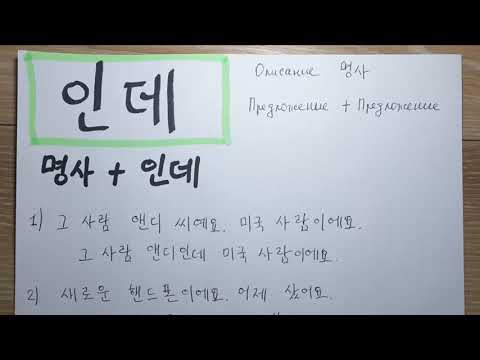 인데
Описание 명사
Предложение + Предложение
명사 + 인데
1) 그 사람 앤디 씨예요. 미국 사람이에요.
그 사람 앤디인데 미국 사람이에요.
2) 새로운 핸드폰이에요. 어제 샀어요.